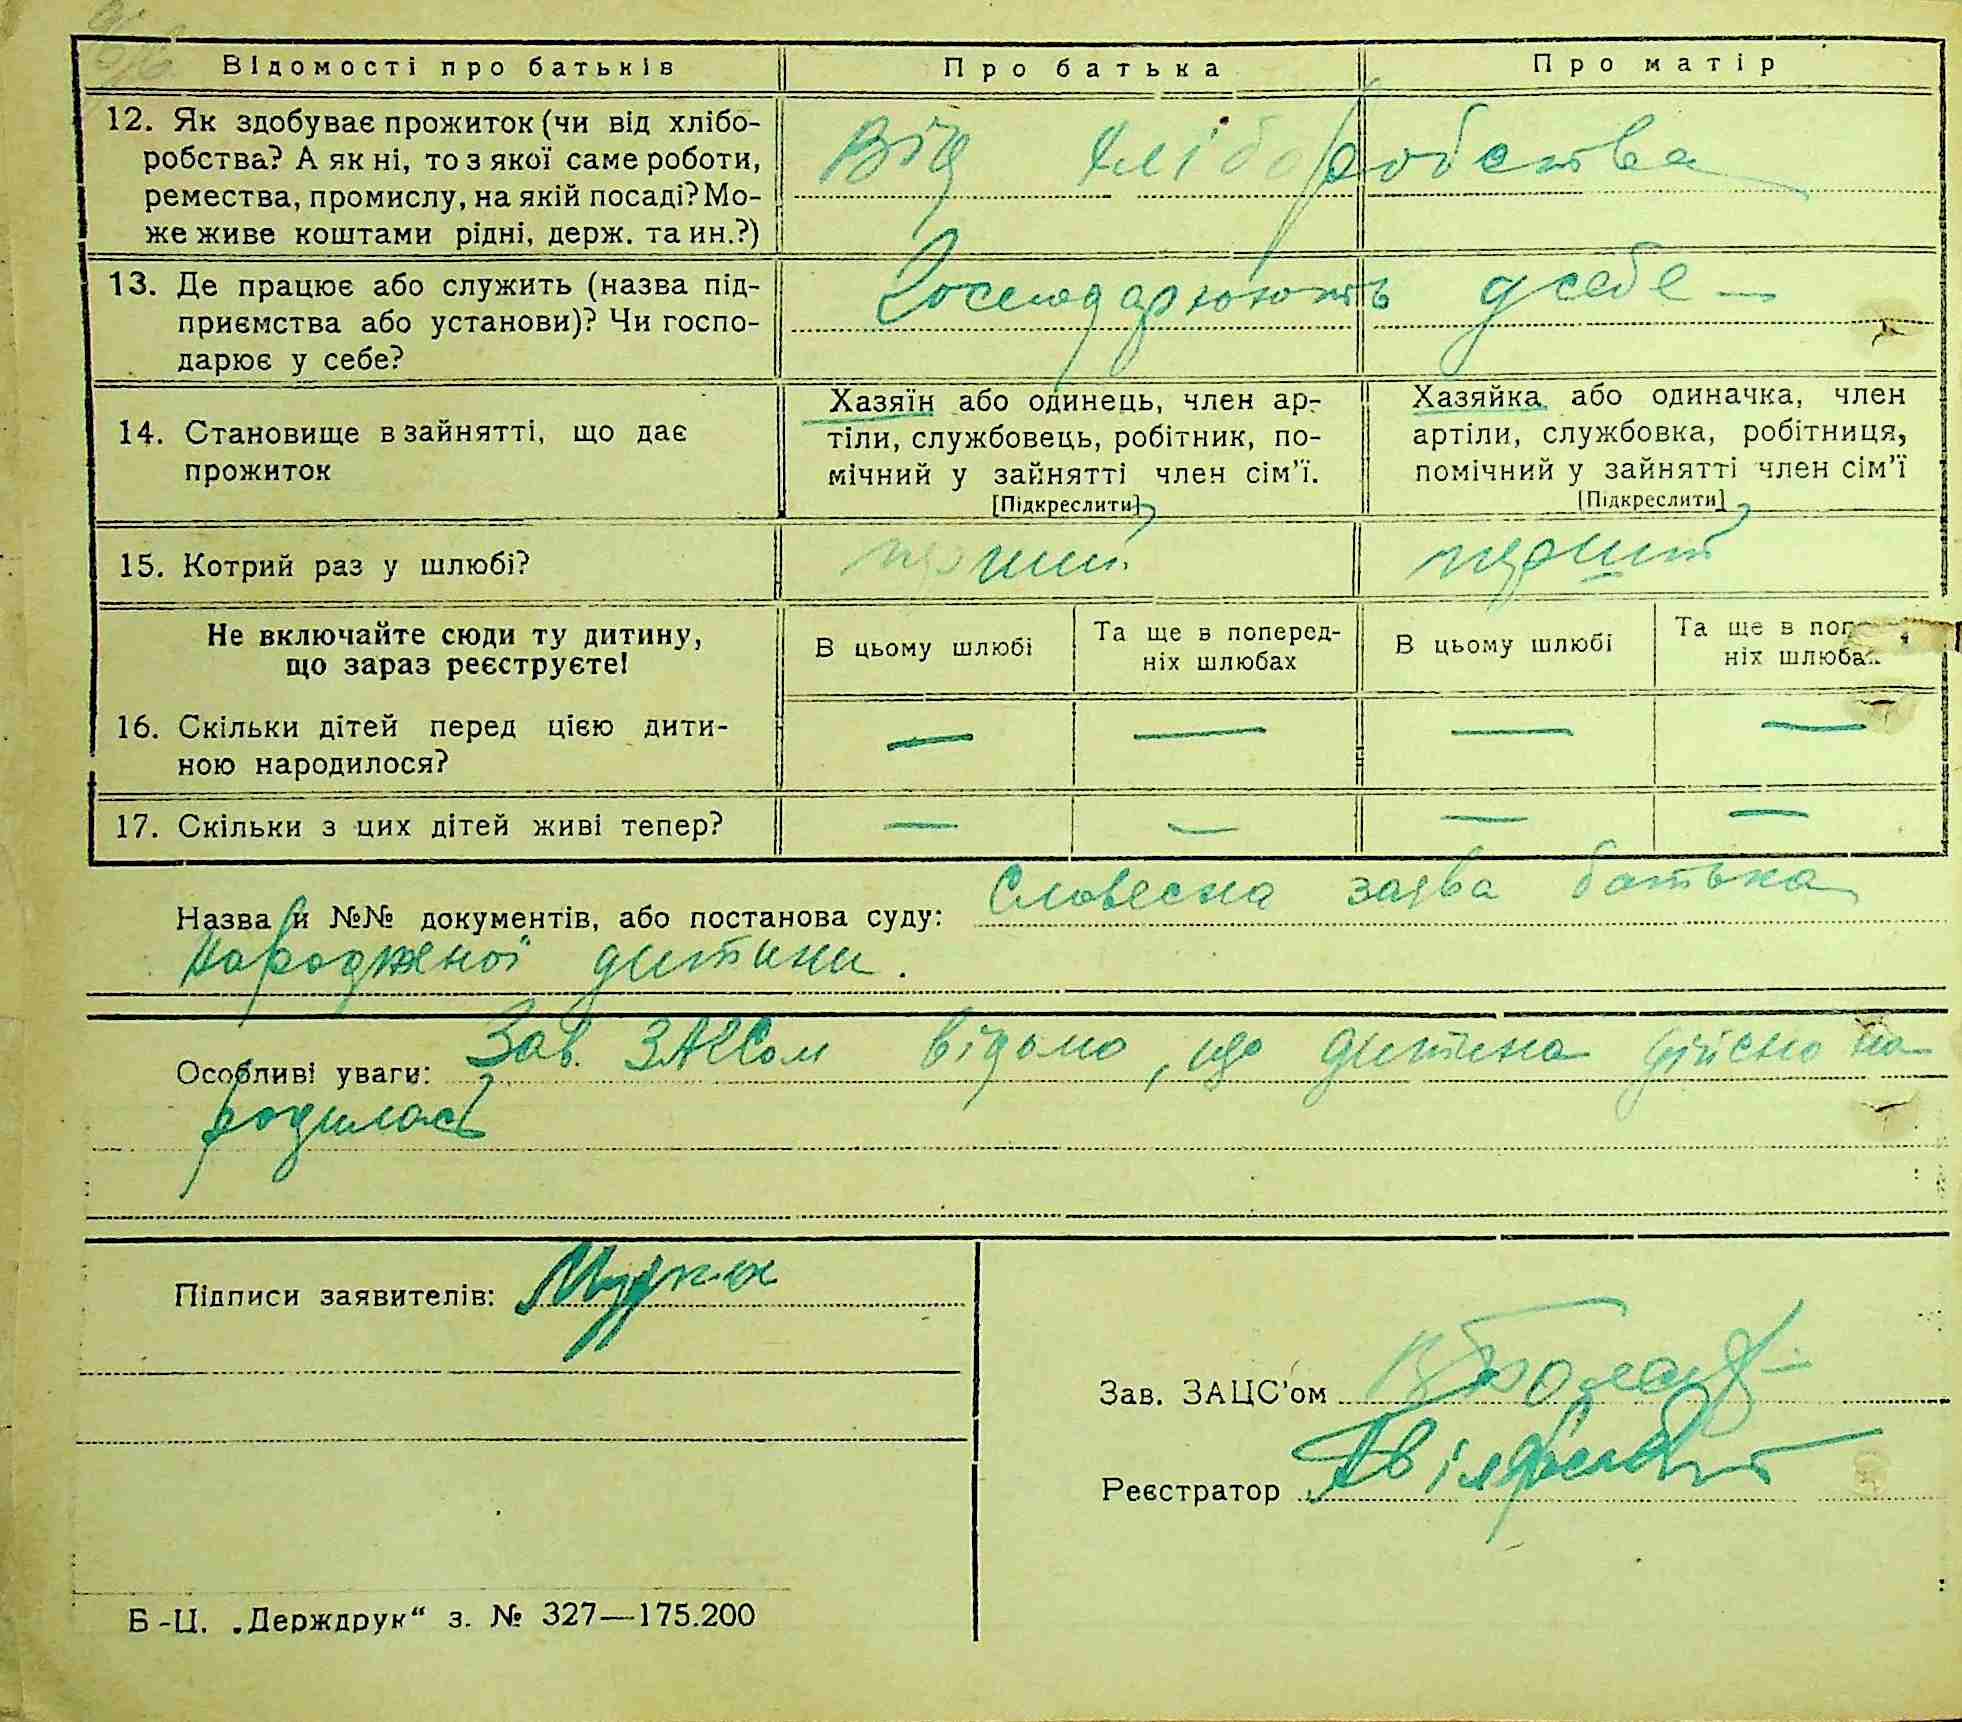 Відомості про батьків Про батька Про матір
12. Як здобуває прожиток (чи від хлібо-
робства? А як ні, то з якої саме роботи,
ремества, промислу, на якій посаді? Мо-
же живе коштами рідні, держ. та ин.?)
Від хліборобства
13. Де працює або служить (назва під-
приємства або установи)? Чи госпо-
дарює у себе?
Господарюють у себе —
14. Становище в зайнятті, що дає
прожиток
Хазяїн або одинець, член ар-
тіли, службовець, робітник, по-
мічний у зайнятті член сім'ї.
[Підкреслити]
Хазяйка або одиначка, член
артіли, службовка, робітниця,
помічний у зайнятті член сім'ї
[Підкреслити]
15. Котрий раз у шлюбі? перший перший
Не включайте сюди ту дитину,
що зараз реєструєте!
В цьому шлюбі
Та ще в поперед-
ніх шлюбах
В цьому шлюбі
Та ще в поп
ніх шлюбах
16. Скільки дітей перед цією дити-
ною народилося?
— — — —
17. Скільки з цих дітей живі тепер? — — — —
Назва й №№ документів, або постанова суду: Словесна заява батька
народженої дитини.
Особливі уваги: Зав. ЗАГСом відомо, що дитина дійсно на-
родилась
Підписи заявителів:
Зав. ЗАЦС'ом
Реєстратор
Б-Ц. „Держдрук“ з. № 327—175.200